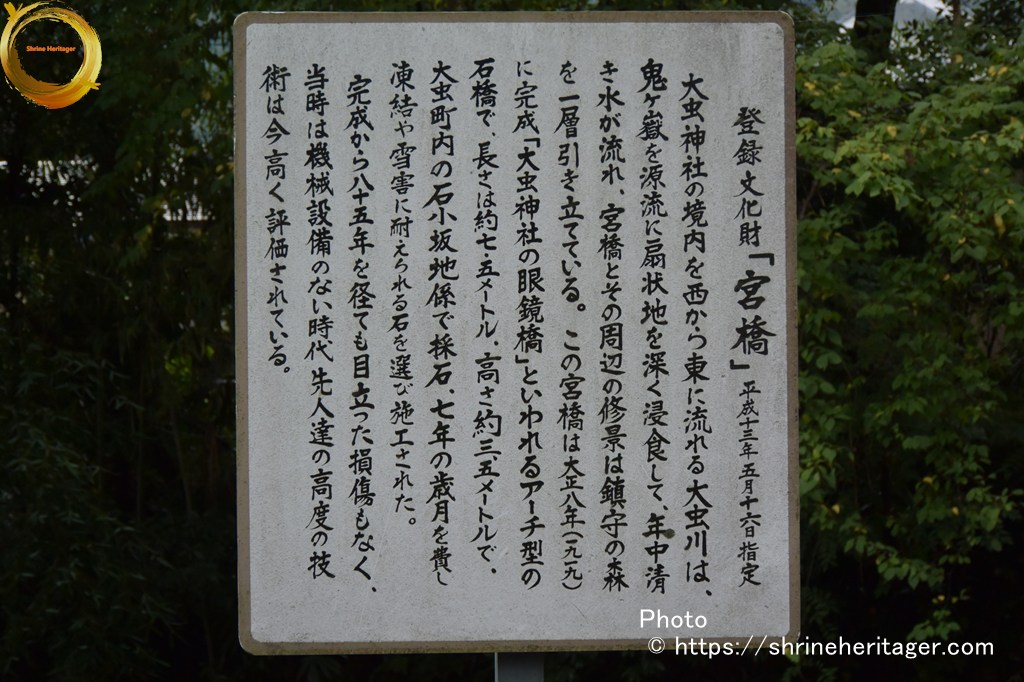 Shrine Heritager
登録文化財「宮橋」平成十三年五月十六日指定
大虫神社の境内を西から東に流れる大虫川は、
鬼ヶ嶽を源流に扇状地を深く浸食して、年中清
き水が流れ、宮橋とその周辺の修景は鎮守の森
を一層引き立てている。この宮橋は大正八年(一九一九)
に完成「大虫神社の眼鏡橋」といわれるアーチ型の
石橋で、長さは約七・五メートル、高さ約三、五メートルで、
大虫町内の石小坂地係で採石、七年の歳月を費し
凍結や雪害に耐えられる石を選び施工された。
完成から八十五年を径ても目立った損傷もなく、
当時は機械設備のない時代、先人達の高度の技
術は今高く評価されている。
Photo
© https://shrineheritager.com